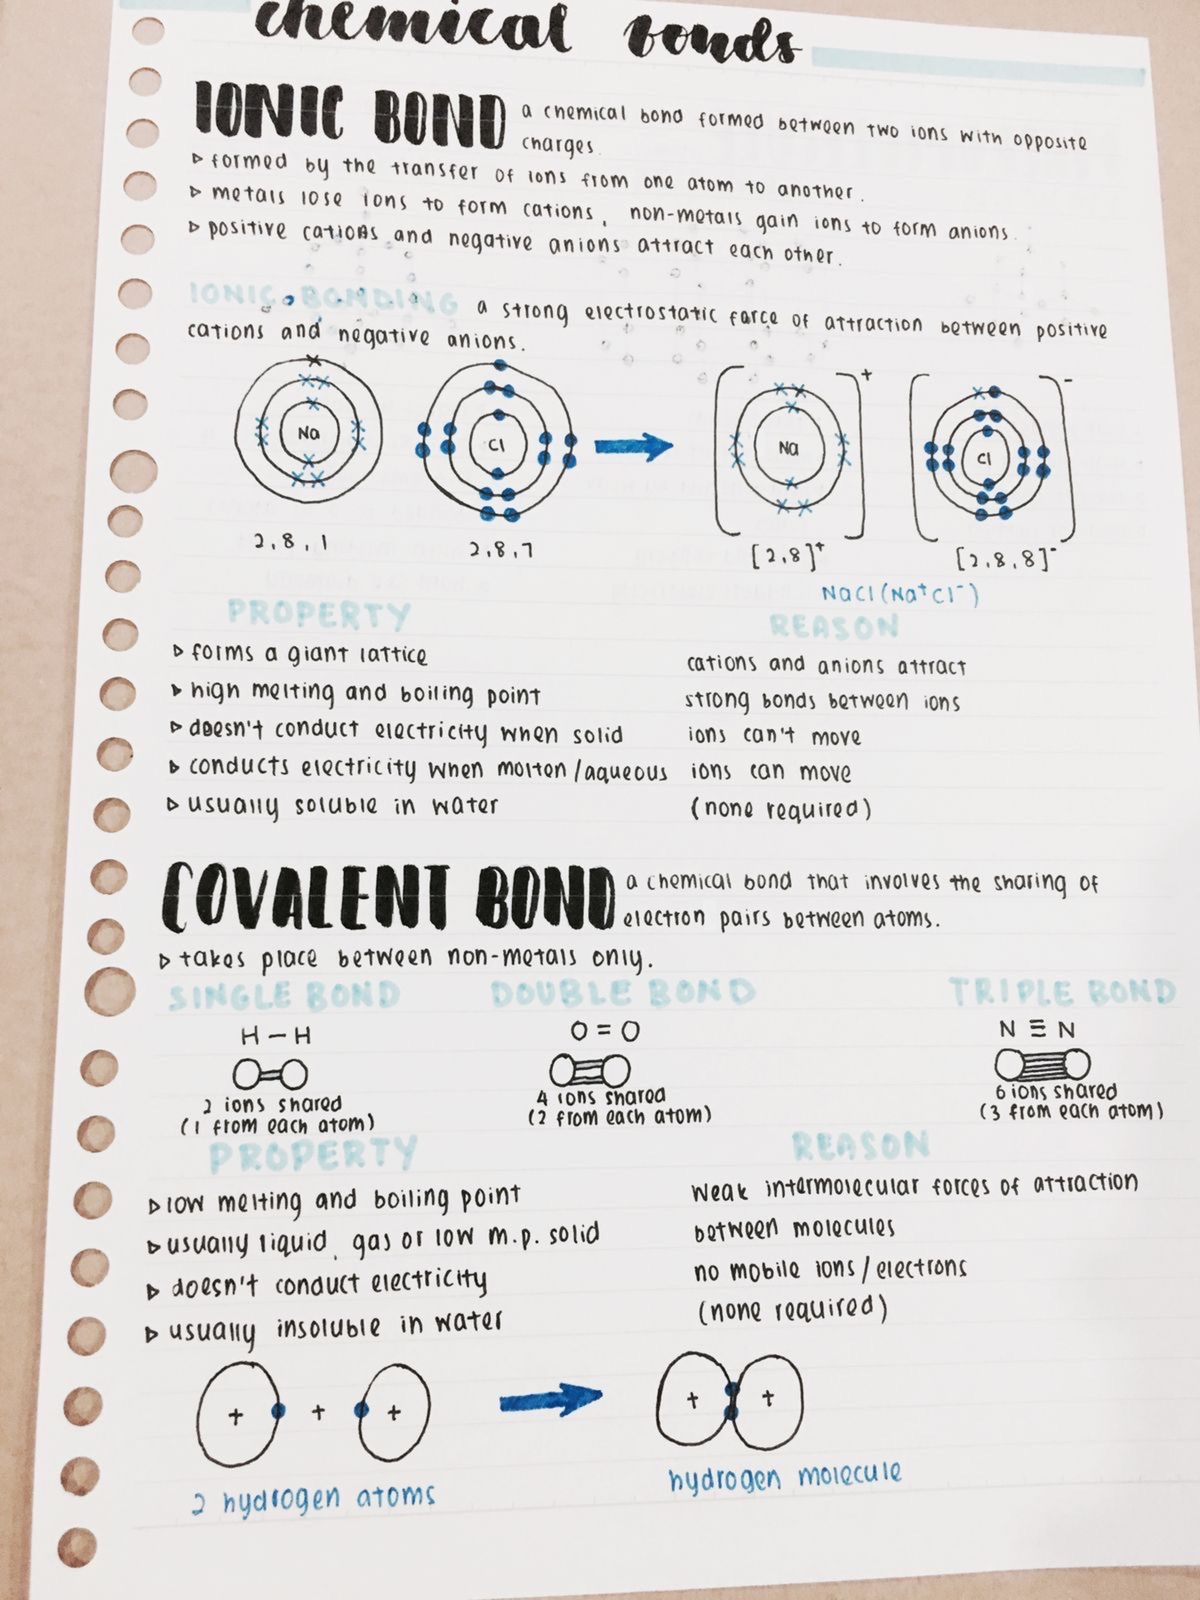 chemical bonds
IONIC BOND a chemical bond formed between two ions with opposite
charges.
▹ formed by the transfer of ions from one atom to another.
▹ metals lose ions to form cations, non-metals gain ions to form anions.
▹ positive cations and negative anions attract each other.
IONIC BONDING a strong electrostatic force of attraction between positive
cations and negative anions.
Na Cl Na + Cl -
2,8,1 2,8,7 [2,8]⁺ [2,8,8]⁻
NaCl (Na⁺Cl⁻)
PROPERTY REASON
▹ forms a giant lattice cations and anions attract
▹ high melting and boiling point strong bonds between ions
▹ doesn't conduct electricity when solid ions can't move
▹ conducts electricity when molten/aqueous ions can move
▹ usually soluble in water (none required)
COVALENT BOND a chemical bond that involves the sharing of
electron pairs between atoms.
▹ takes place between non-metals only.
SINGLE BOND DOUBLE BOND TRIPLE BOND
H – H O = O N ≡ N
2 ions shared 4 ions shared 6 ions shared
(1 from each atom) (2 from each atom) (3 from each atom)
PROPERTY REASON
▹ low melting and boiling point weak intermolecular forces of attraction
▹ usually liquid, gas or low m.p. solid between molecules
▹ doesn't conduct electricity no mobile ions/electrons
▹ usually insoluble in water (none required)
+ + + + +
2 hydrogen atoms hydrogen molecule